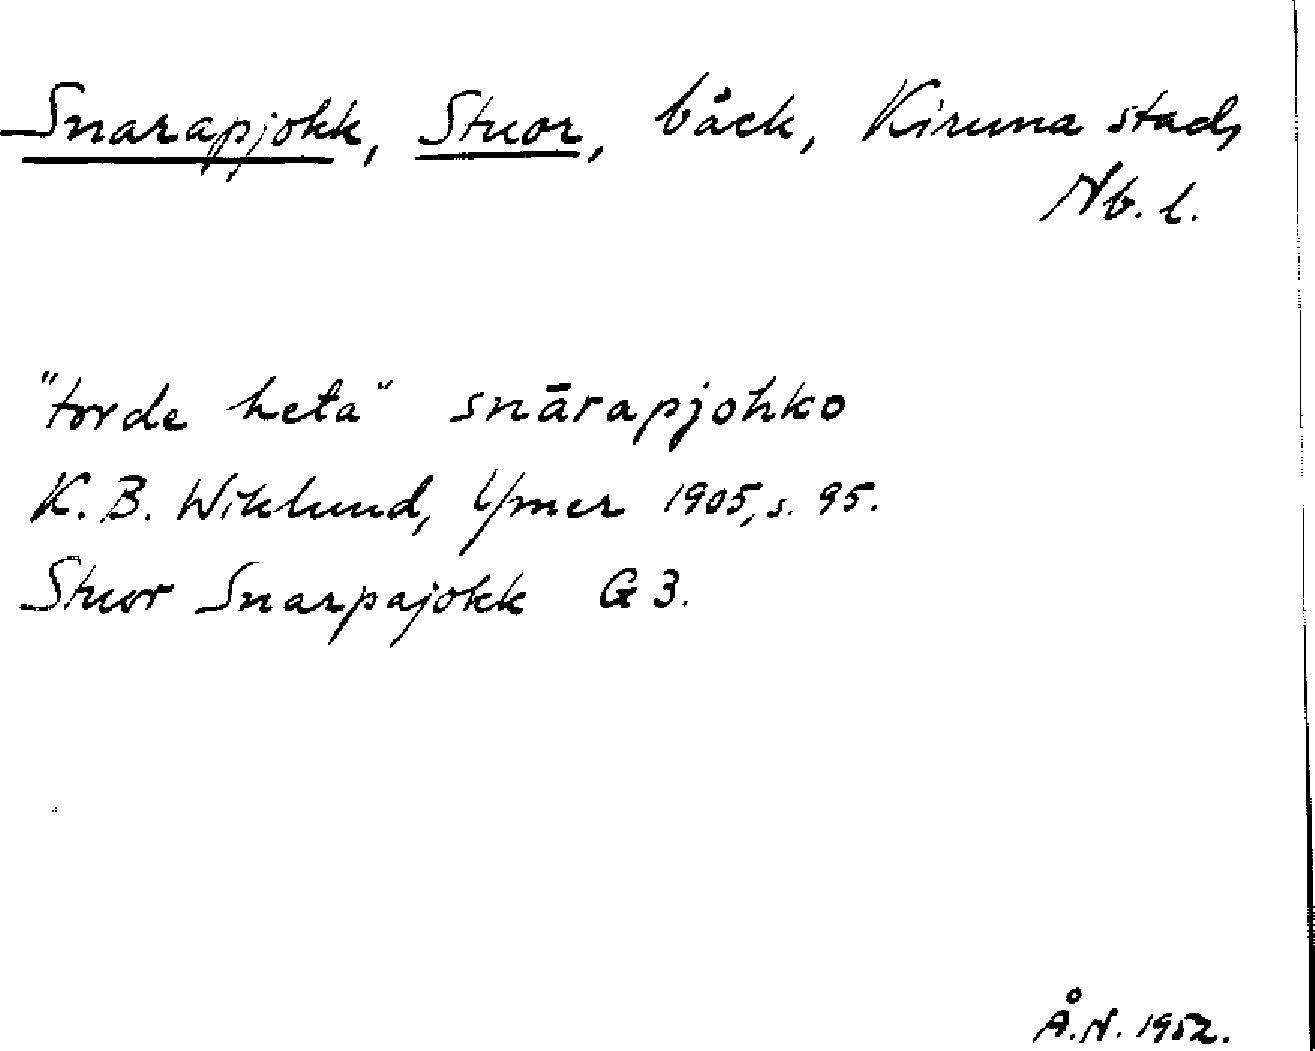 Snarapjokk, Stuor, bäck, Kiruna stad,
Nb. l.
"torde heta" snārapjohko
K. B. Wiklund, Ymer 1905, s. 95.
Stuor Snarpajokk G 3.
Å.N. 1952.